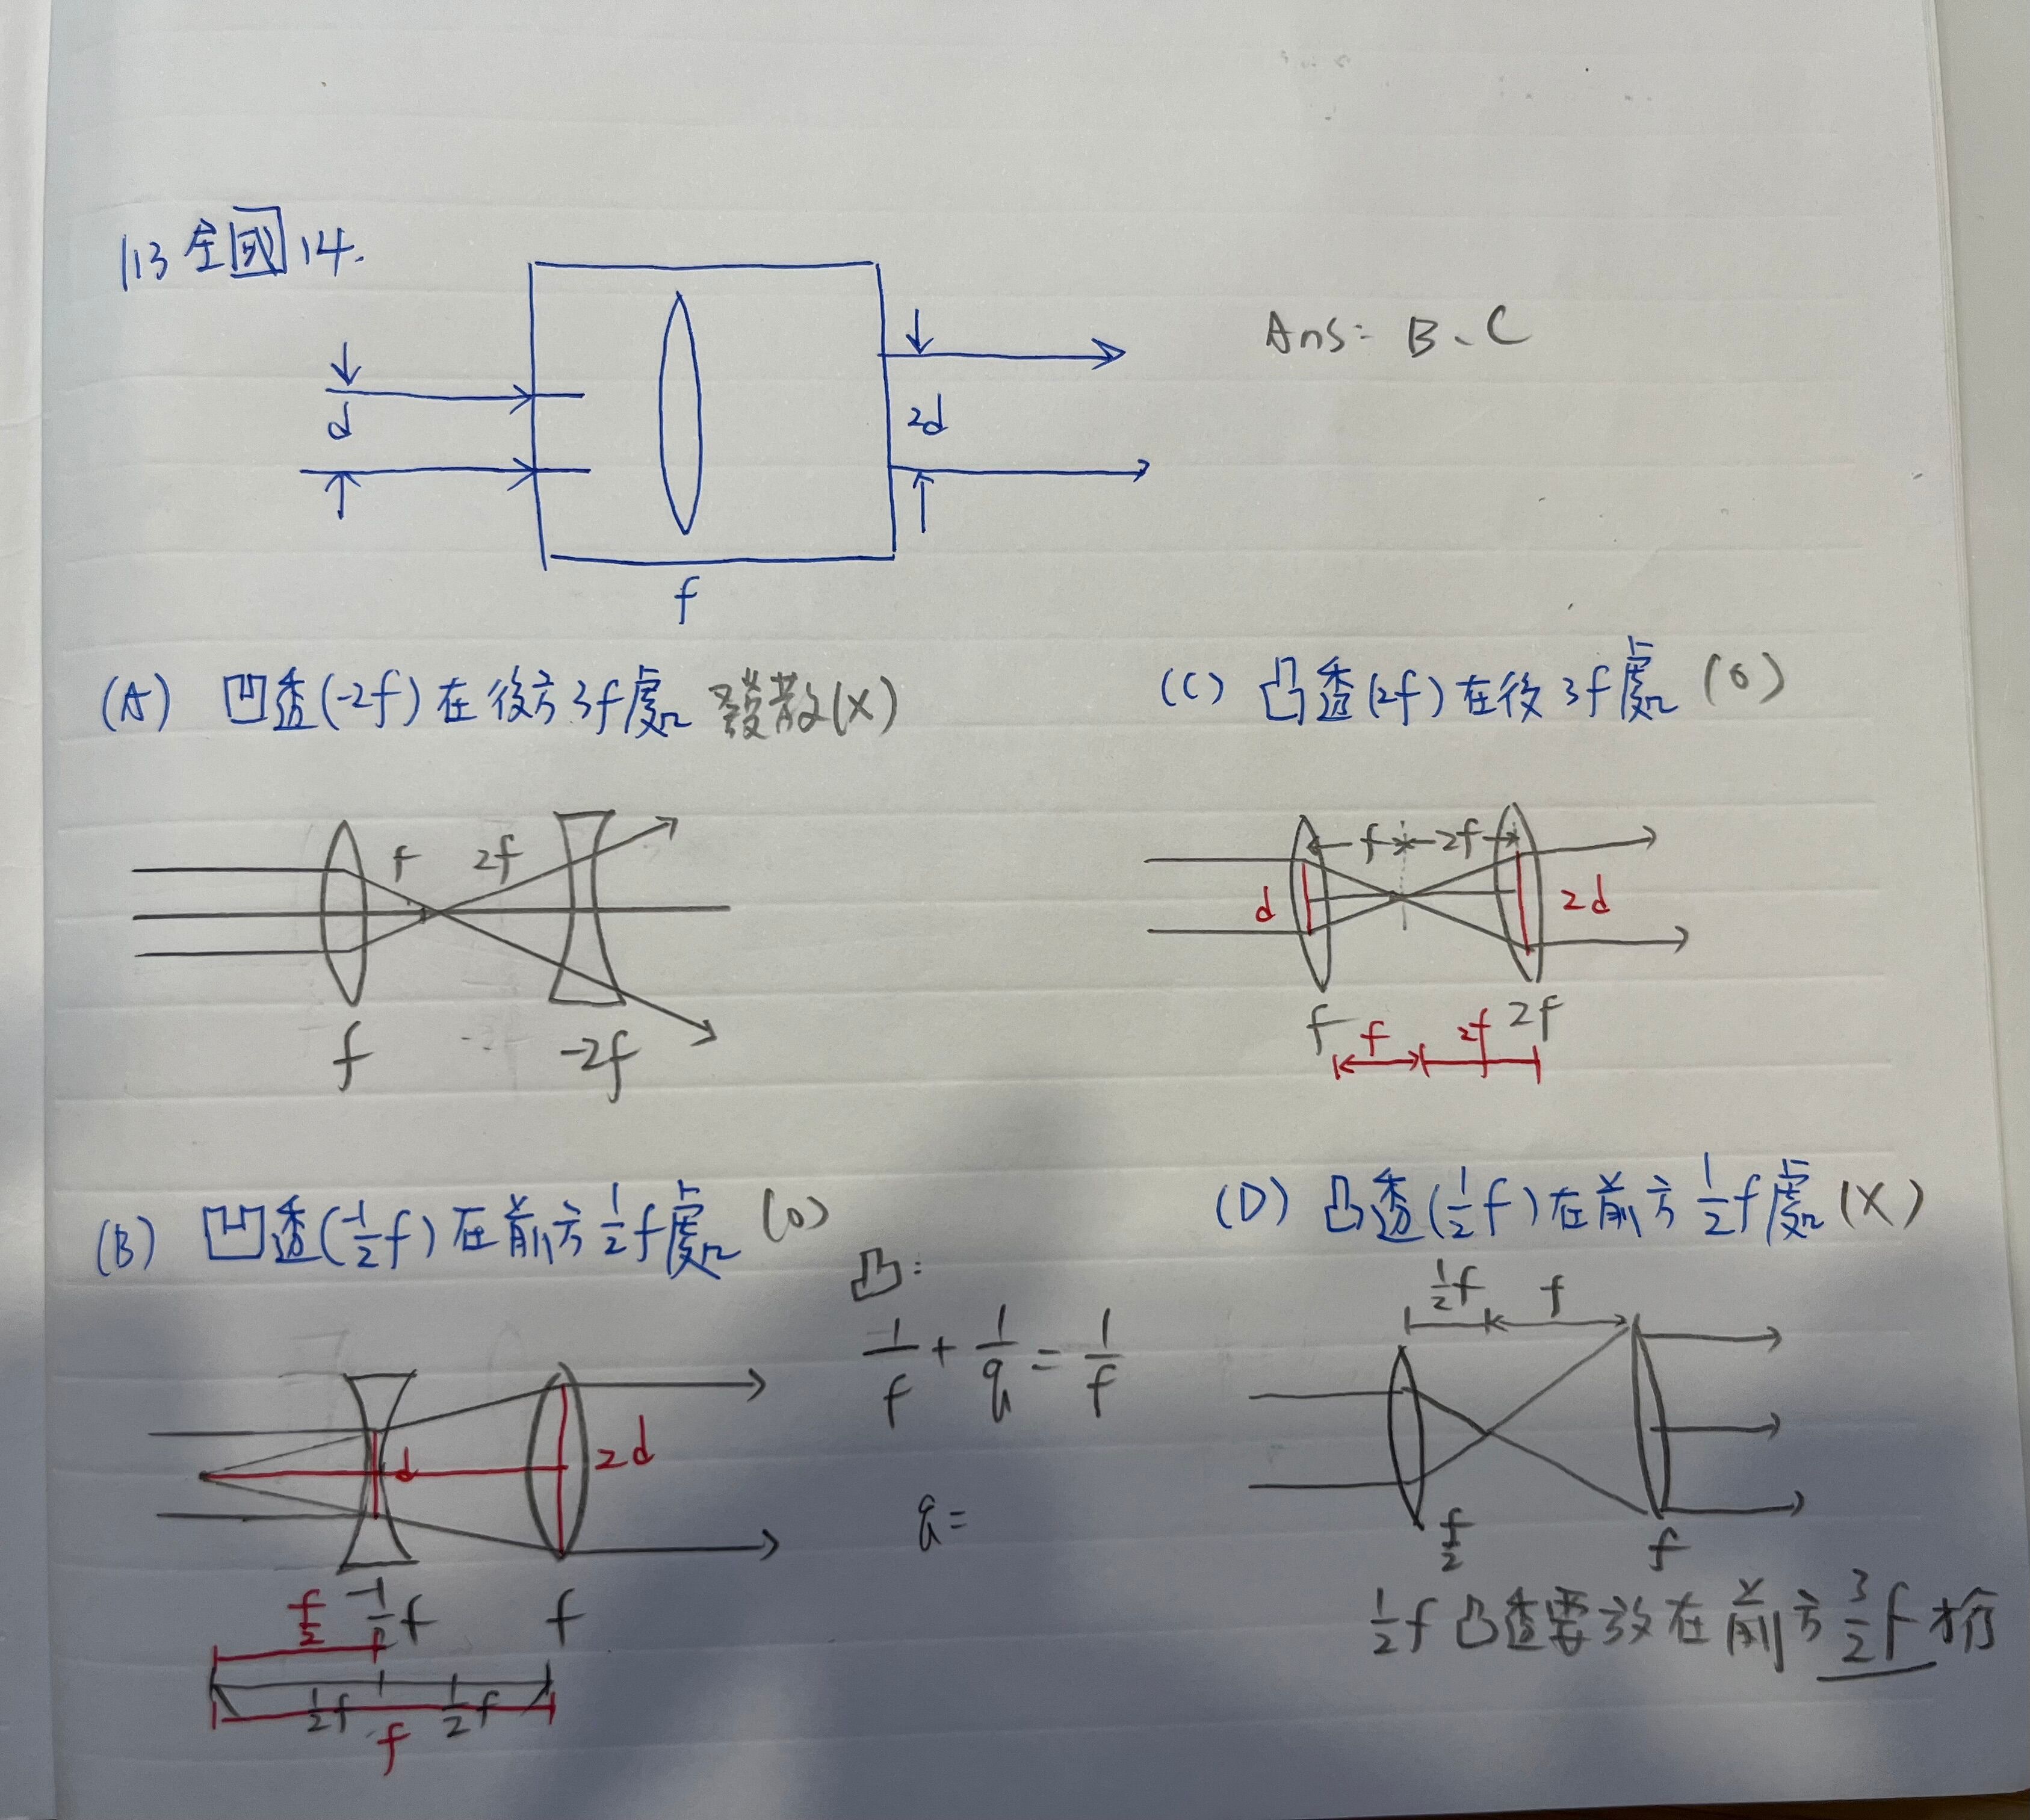 113 全國 14.
Ans = B、C
d
2d
f
(A) 凹透(-2f)在後方3f處 發散(X)
f 2f
f -2f
(C) 凸透(2f)在後3f處 (O)
f 2f
d 2d
f 2f
f 2f
(B) 凹透(-1/2 f)在前方 1/2 f處 (O)
d 2d
f/2 -1/2 f f
1/2 f 1/2 f
f
凸:
1/f + 1/q = 1/f
q =
(D) 凸透(1/2 f)在前方 1/2 f處 (X)
1/2 f f
f/2 f
1/2 f 凸透要放在前方 3/2 f 才行